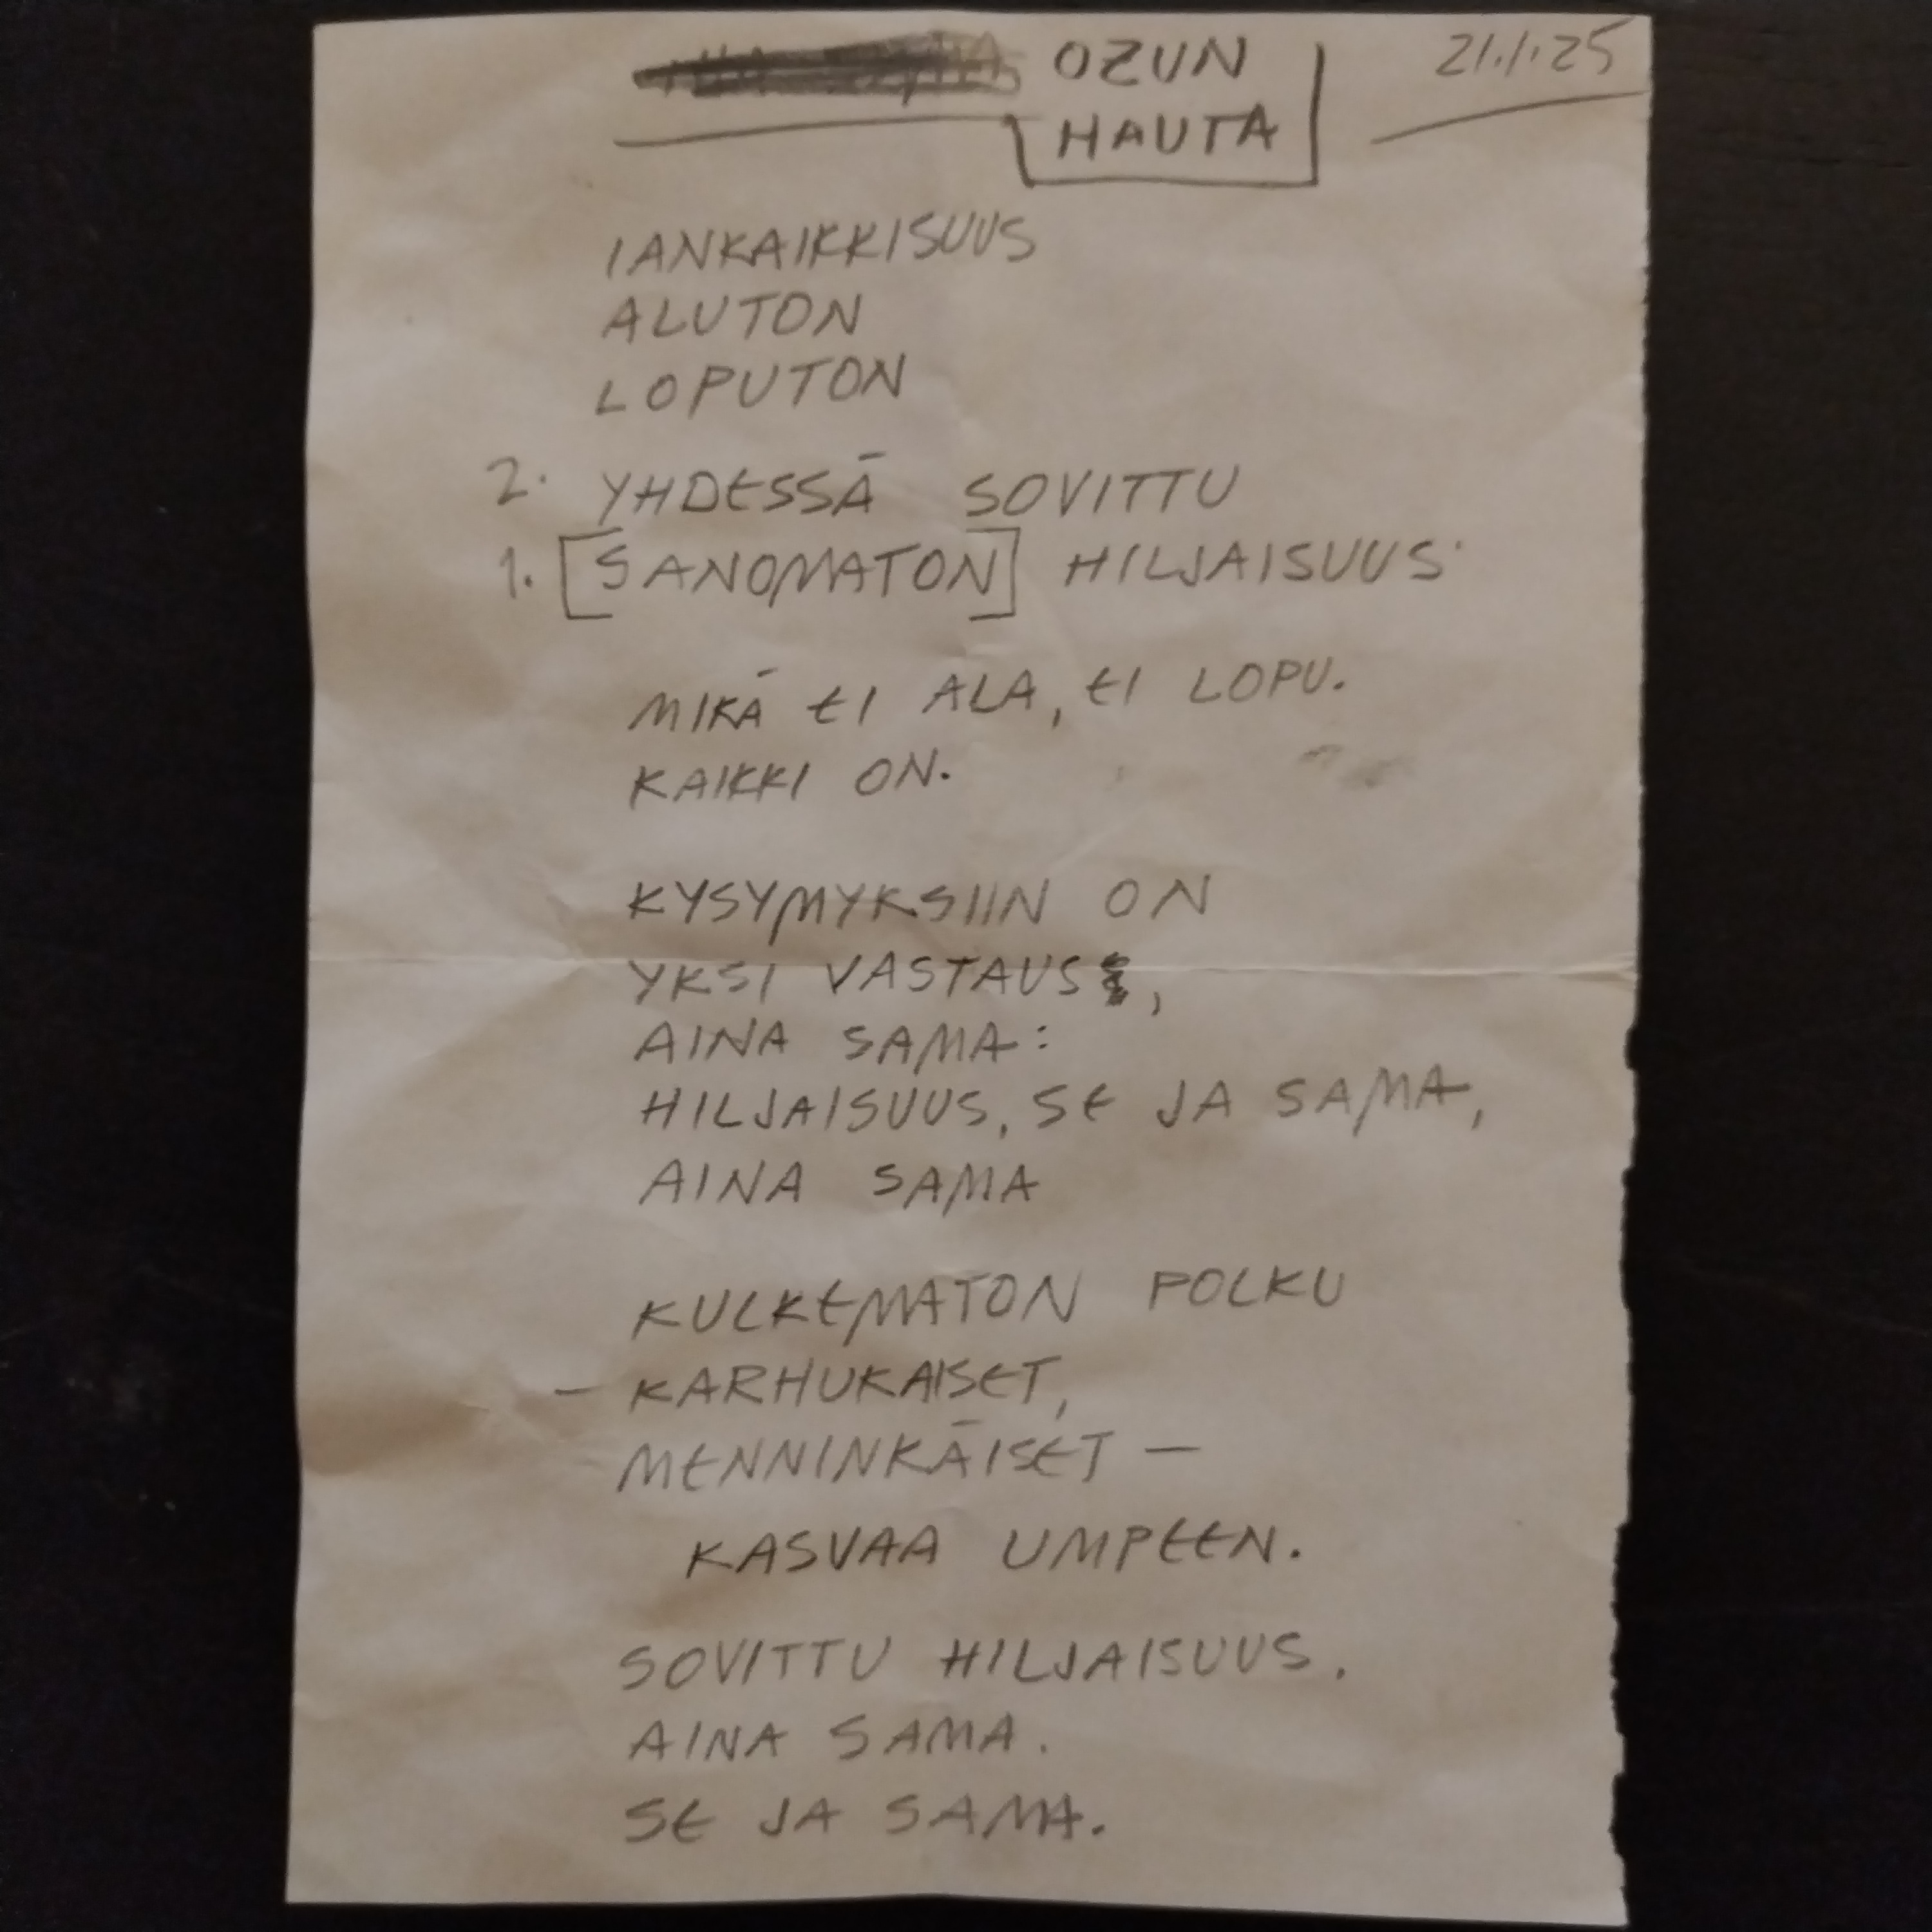 OZUN 21.1.25
HAUTA
IANKAIKKISUUS
ALUTON
LOPUTON
2. YHDESSÄ SOVITTU
1. [SANOMATON] HILJAISUUS.
MIKÄ EI ALA, EI LOPU.
KAIKKI ON.
KYSYMYKSIIN ON
YKSI VASTAUS,
AINA SAMA:
HILJAISUUS, SE JA SAMA,
AINA SAMA
KULKEMATON POLKU
– KARHUKAISET,
MENNINKÄISET –
KASVAA UMPEEN.
SOVITTU HILJAISUUS.
AINA SAMA.
SE JA SAMA.